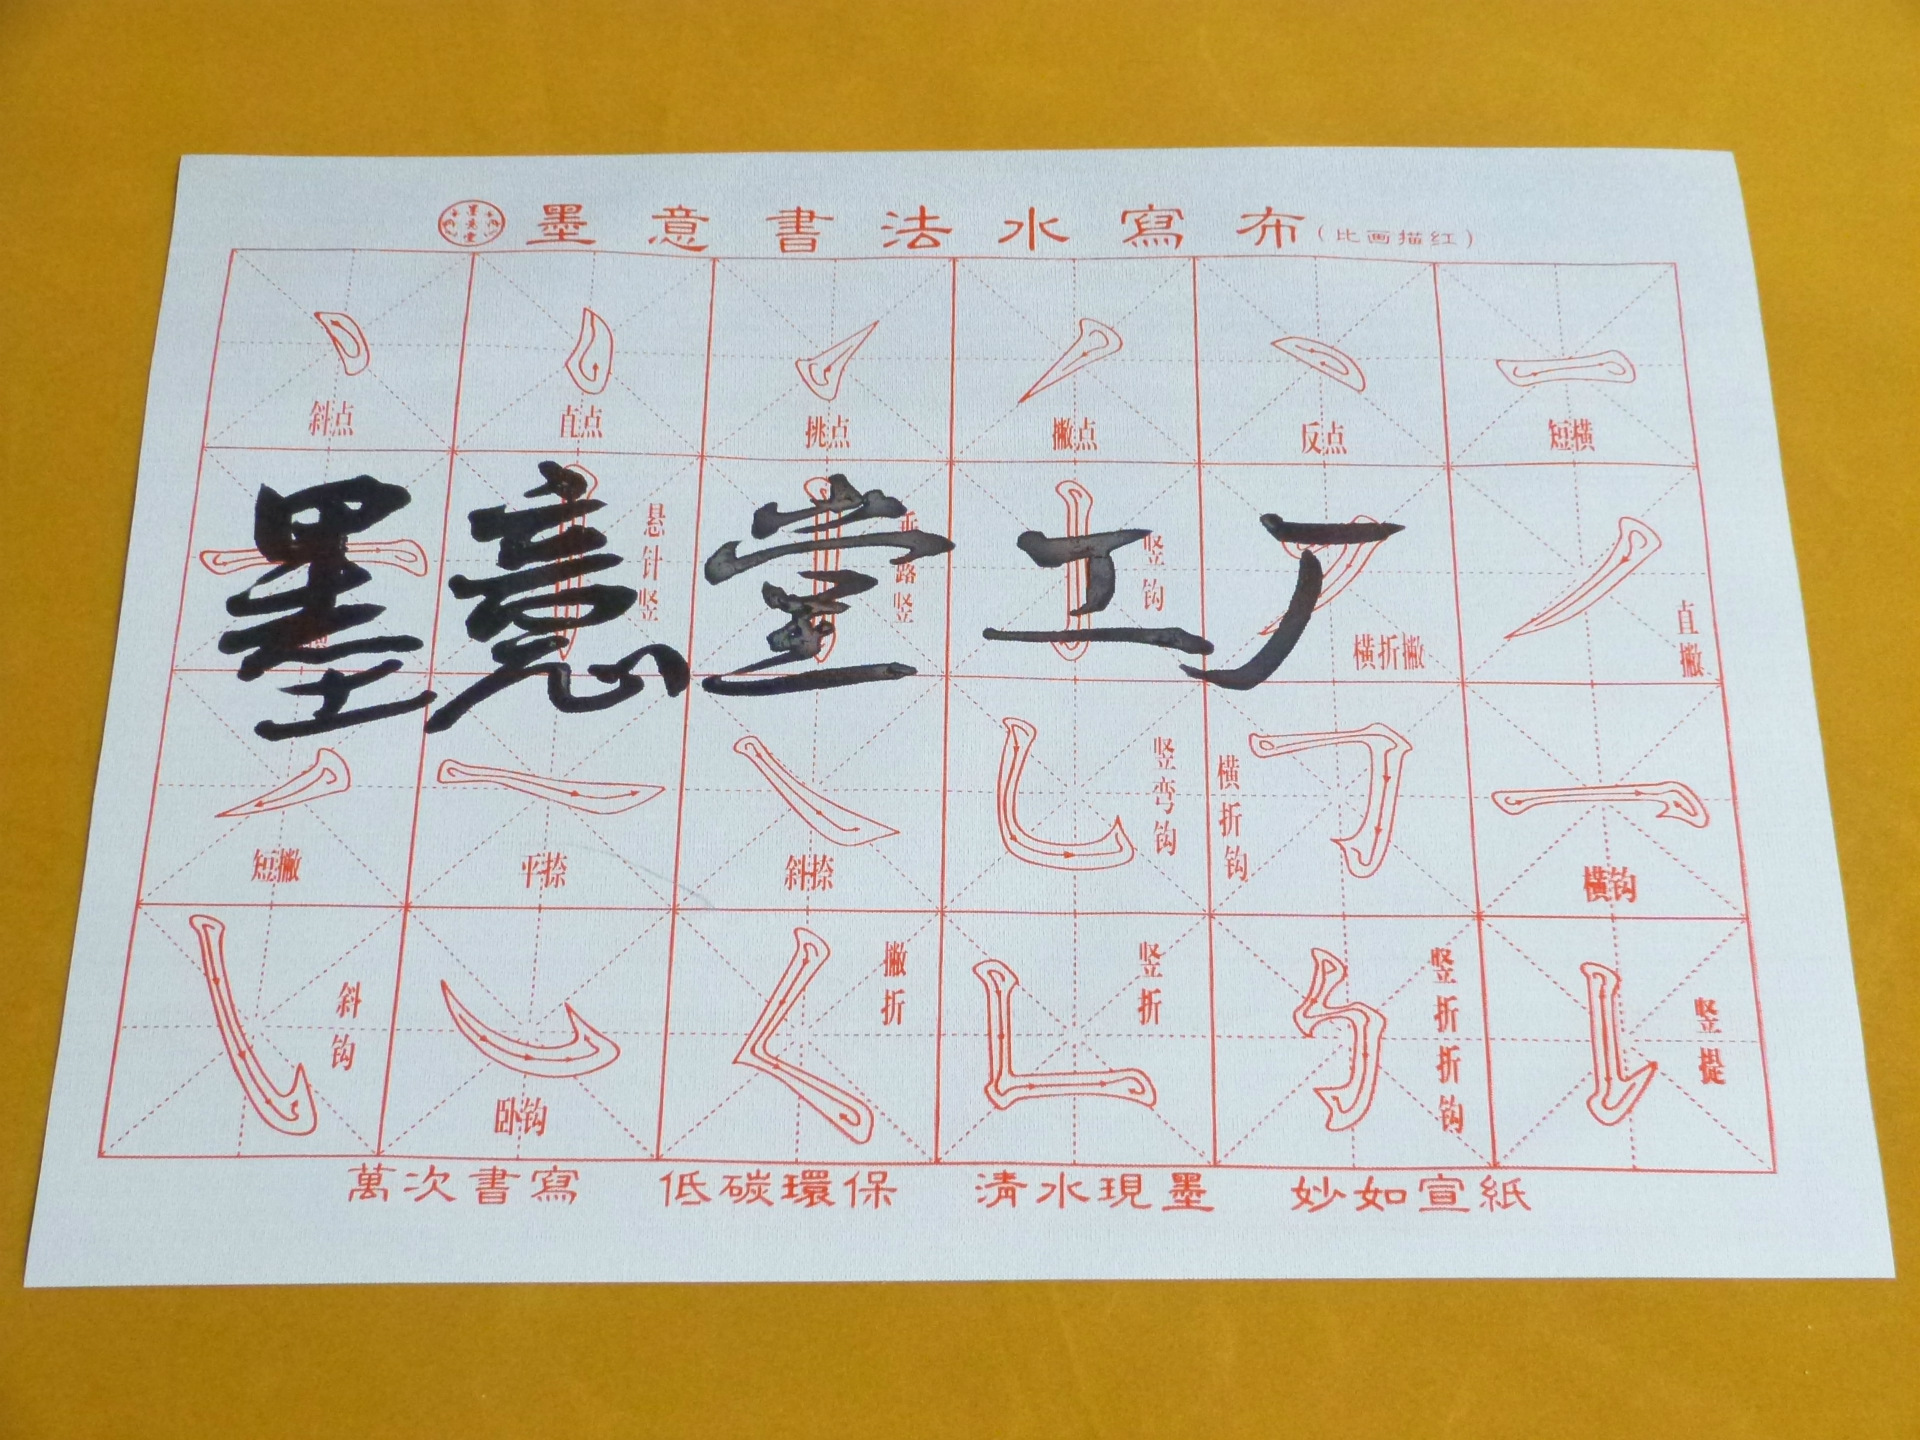 墨意堂
墨意書法水寫布(比画描红)
斜点 直点 挑点 撇点 反点 短横
悬针竖 垂露竖 竖钩 横折撇 直撇
墨意堂工厂
短撇 平捺 斜捺 竖弯钩 横折钩 横钩
斜钩 卧钩 撇折 竖折 竖折折钩 竖提
萬次書寫 低碳環保 清水現墨 妙如宣紙